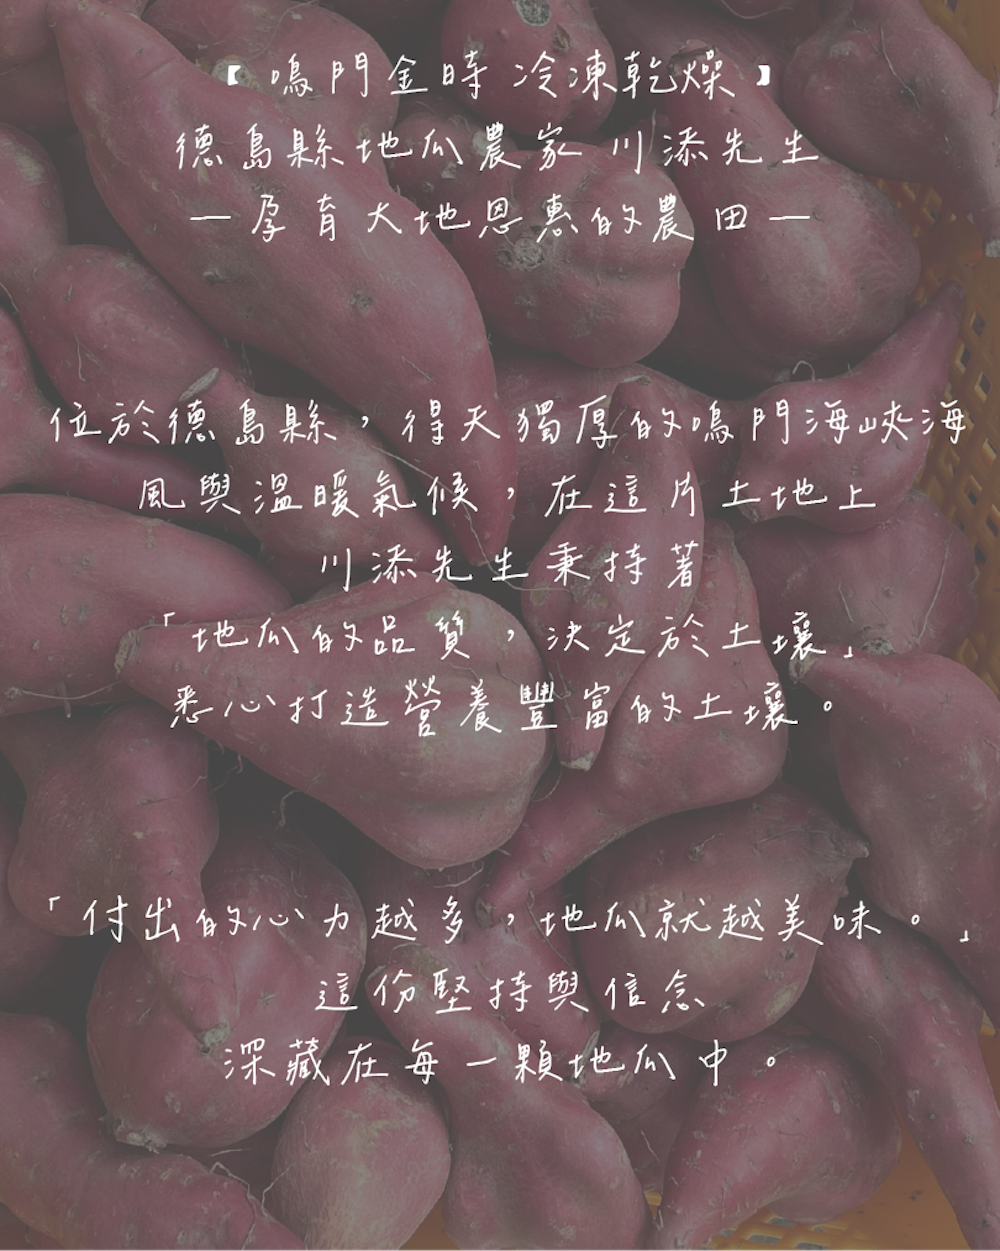 【鳴門金時 冷凍乾燥】
德島縣地瓜農家 川添先生
—孕育大地恩惠的農田—
位於德島縣，得天獨厚的鳴門海峽海
風與溫暖氣候，在這片土地上
川添先生秉持著
「地瓜的品質，決定於土壤」
悉心打造營養豐富的土壤。
「付出的心力越多，地瓜就越美味。」
這份堅持與信念
深藏在每一顆地瓜中。